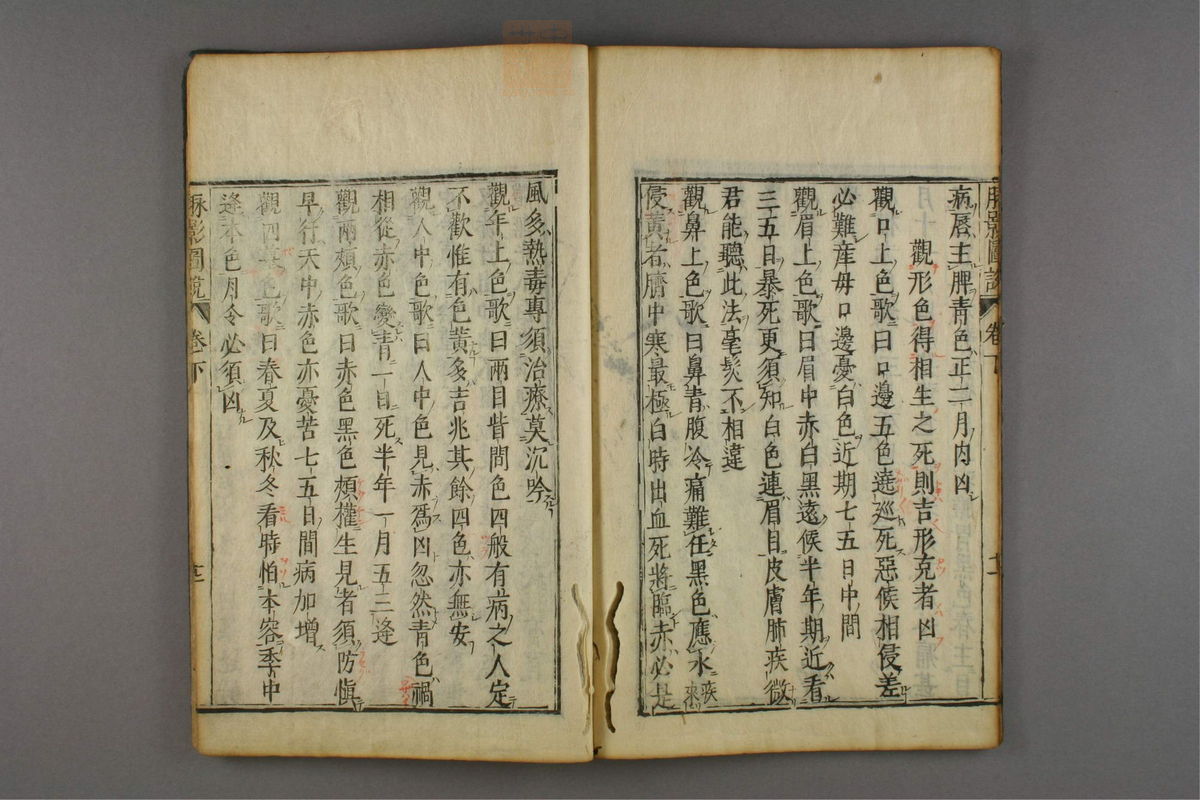 脉影圖説 卷下 十二
病唇主脾青色正二月内凶
觀形色得相生之死則吉形克者凶
觀口上色歌曰口邊五色遶巡死惡候相侵差
必難産母口邊憂白色近期七五日中間
觀眉上色歌曰眉中赤白黑遠候半年期近看
三五日暴死更須知白色連眉目皮膚肺疾微
君能聽此法毫髮不相違
觀鼻上色歌曰鼻青腹冷痛難任黑色應水疾來
侵黄者臍中寒最極白時出血死將臨赤必是
風多熱毒專須治療莫沉吟
觀年上色歌曰兩目眥間色四般有病之人定
不歡惟有色黄多吉兆其餘四色亦無安
觀人中色歌曰人中色見赤爲凶忽然青色禍
相從赤色變青一日死半年一月五三逢
觀兩頰色歌曰赤色黑色頰權生見者須防慎
早行天中赤色亦憂苦七五日間病加增
觀四季色歌曰春夏及秋冬看時怕本容季中
逢本色月令必須凶
脉影圖説 卷下